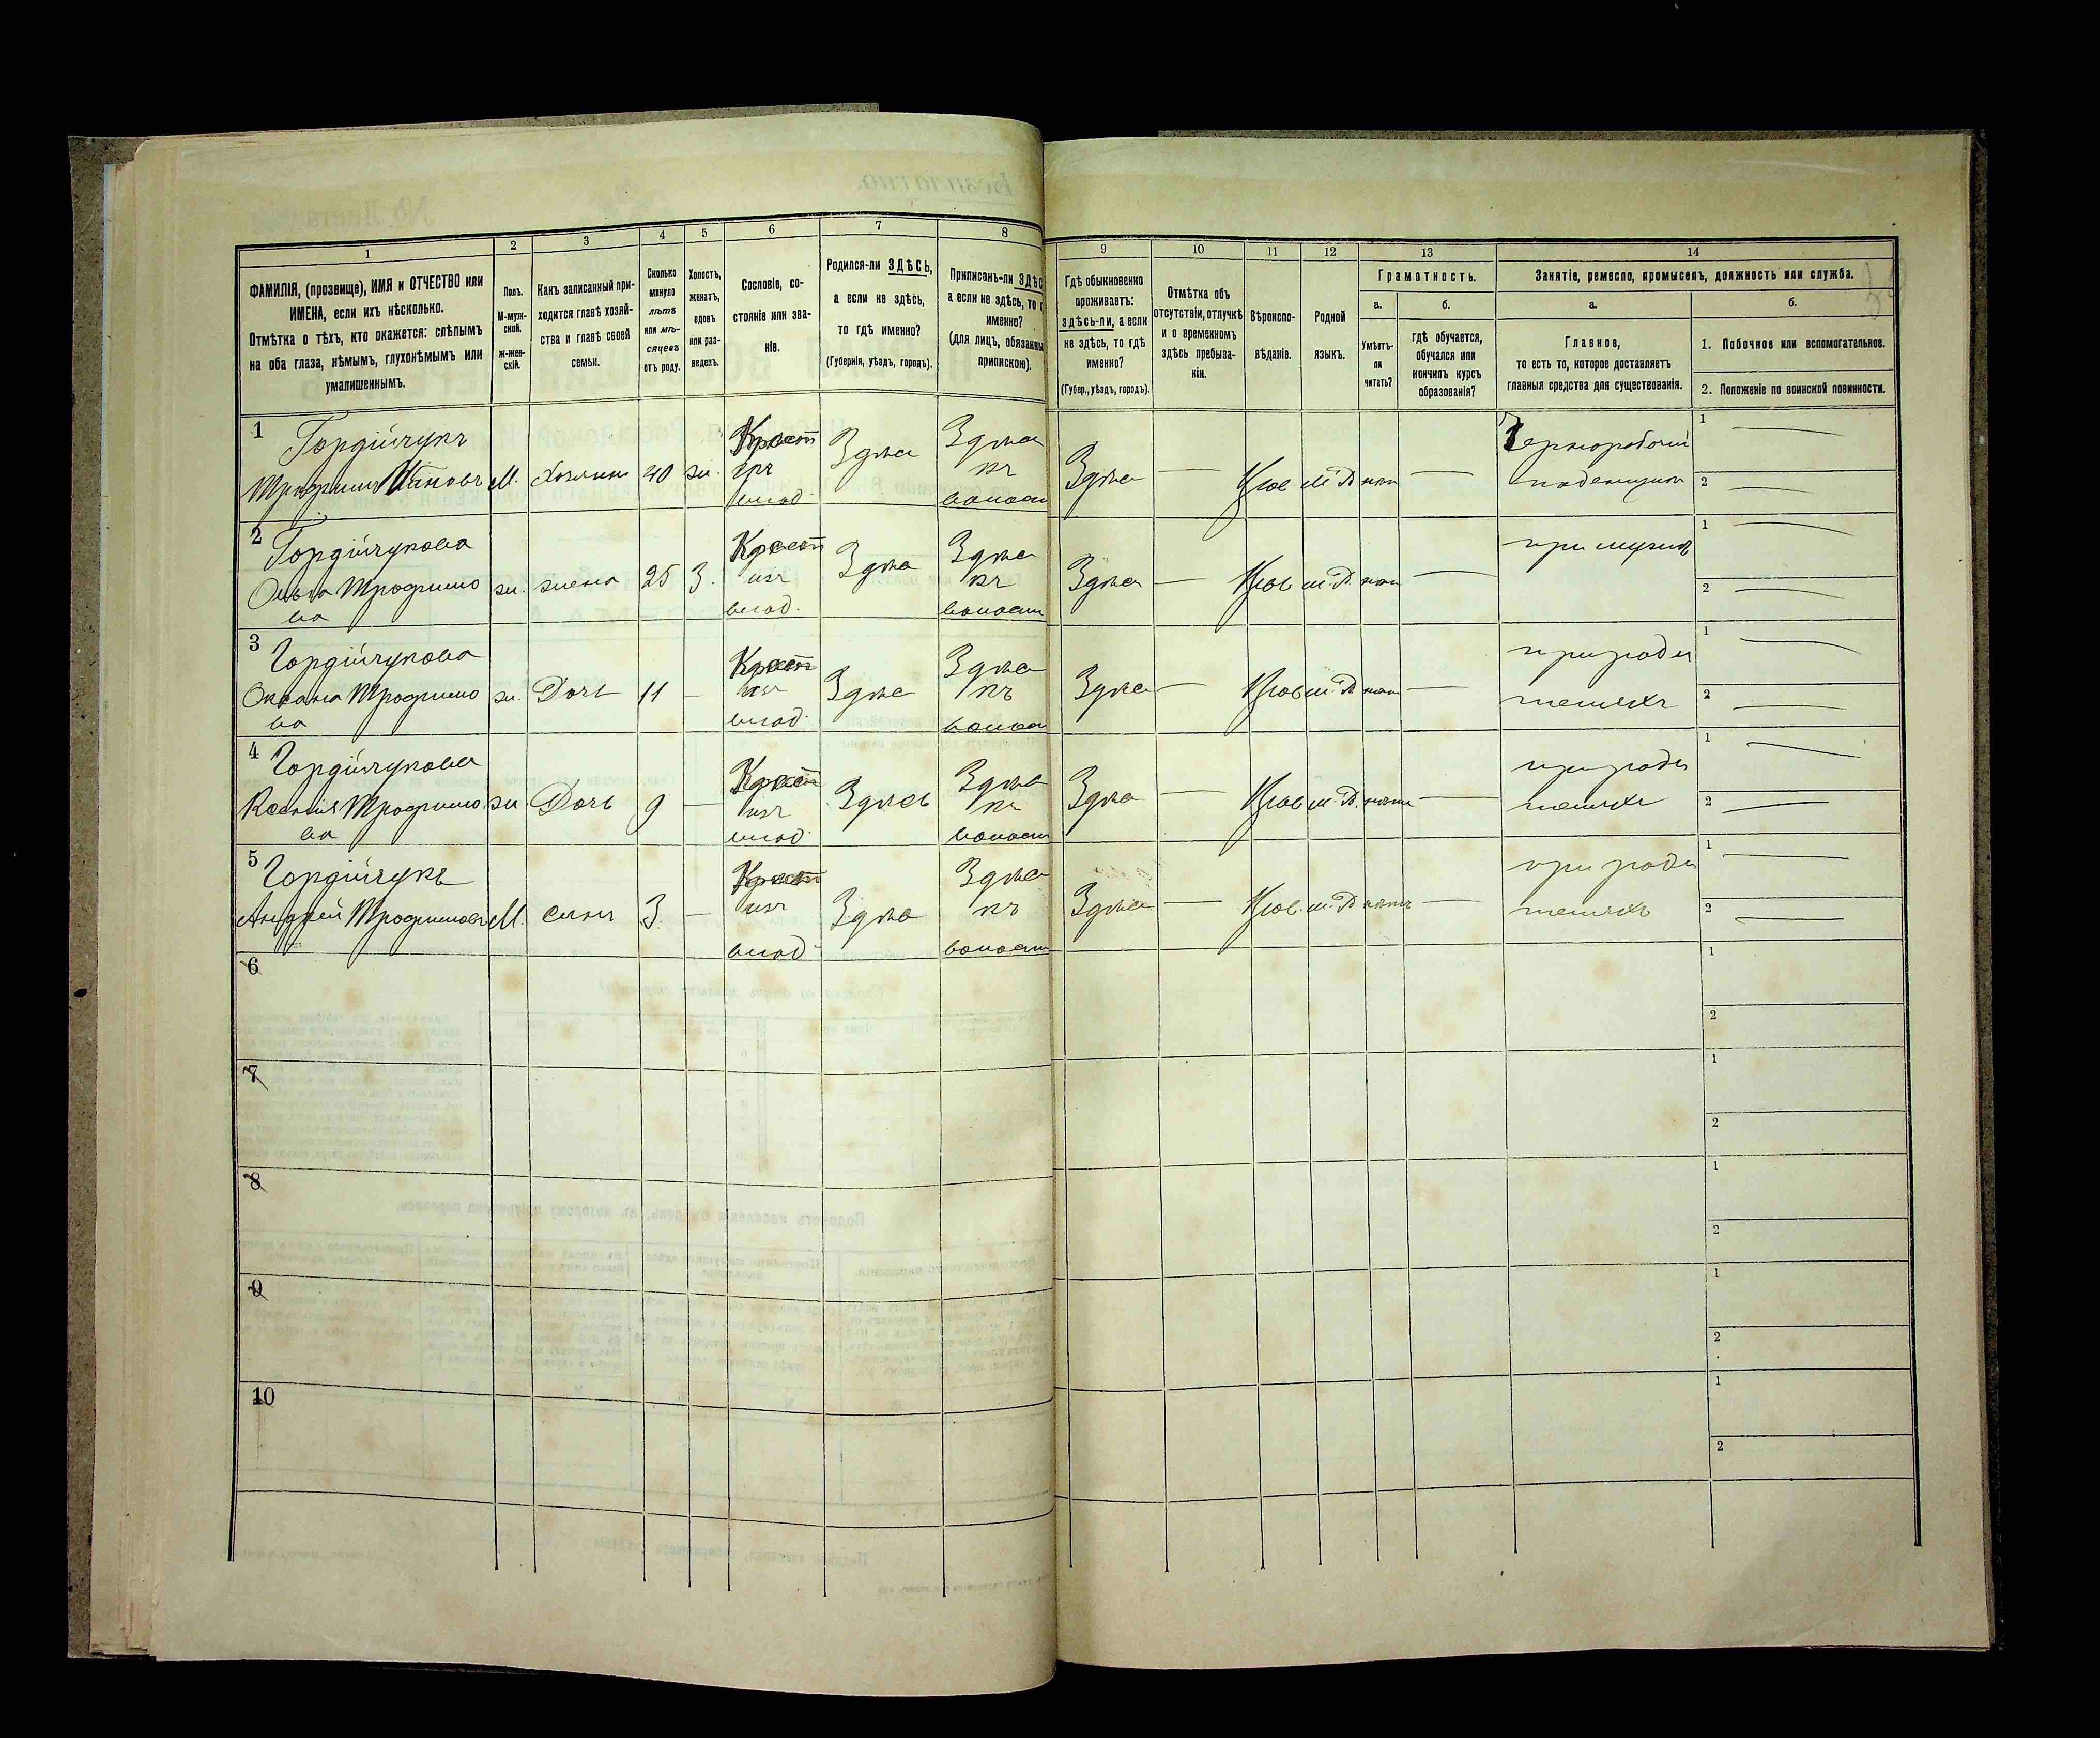 1
2
3
4
5
6
7
8
ФАМИЛІЯ, (прозвище), ИМЯ и ОТЧЕСТВО или
ИМЕНА, если ихъ нѣсколько.
Отмѣтка о тѣхъ, кто окажется: слѣпымъ
на оба глаза, нѣмымъ, глухонѣмымъ или
умалишеннымъ.
Полъ.
М-муж-
ской.
Ж-жен-
скій.
Какъ записанный при-
ходится главѣ хозяй-
ства и главѣ своей
семьи.
Сколько
минуло
лѣтъ
или мѣ-
сяцевъ
отъ роду.
Холостъ,
женатъ,
вдовъ
или раз-
веденъ.
Сословіе, со-
стояніе или зва-
ніе.
Родился-ли ЗДѢСЬ,
а если не здѣсь,
то гдѣ именно?
(Губернія, уѣздъ, городъ).
Приписанъ-ли ЗДѢС
а если не здѣсь, то г
именно?
(для лицъ, обязанны
припискою).
9
10
11
12
13
14
Гдѣ обыкновенно
проживаетъ:
здѣсь-ли, а если
не здѣсь, то гдѣ
именно?
(Губер., уѣздъ, городъ).
Отмѣтка объ
отсутствіи, отлучкѣ
и о временномъ
здѣсь пребыва-
ніи.
Вѣроиспо-
вѣданіе.
Родной
языкъ.
Грамотность.
а.
Умѣетъ-
ли
читать?
б.
гдѣ обучается,
обучался или
кончилъ курсъ
образованія?
Занятіе, ремесло, промыселъ, должность или служба.
а.
Главное,
то есть то, которое доставляетъ
главныя средства для существованія.
б.
1. Побочное или вспомогательное.
2. Положеніе по воинской повинности.
1 Гордійчукъ
Трофимъ М. Хозяинъ 40 ж.
Крест
влад.
Здѣсь
Здѣсь
къ
волост
Здѣсь — нѣтъ —
Чернорабочій
поденщикъ
1 —
2 —
2 Гордійчукова
Ольга Трофимо
ва
ж. жена 25 З.
Крест
изъ
влад.
Здѣсь
Здѣсь
къ
волост
Здѣсь — нѣтъ —
при мужѣ
1 —
2 —
3 Гордійчукова
Оксана Трофимо
ва
ж. Дочь 11 —
Крест
изъ
влад.
Здѣсь
Здѣсь
къ
волост
Здѣсь — нѣтъ —
при роди
теляхъ
1 —
2 —
4 Гордійчукова
Ксенія Трофимо
ва
ж Дочь 9 —
Крест
изъ
влад.
Здѣсь
Здѣсь
къ
волост
Здѣсь — нѣтъ —
при роди
теляхъ
1 —
2 —
5 Гордійчукъ
Андрей Трофимовъ М. сынъ 3 —
Крест
изъ
влад.
Здѣсь
Здѣсь
къ
волост
Здѣсь — нѣтъ —
при роди
теляхъ
1 —
2 —
6
1
2
7
1
2
8
1
2
9
1
2
10
1
2